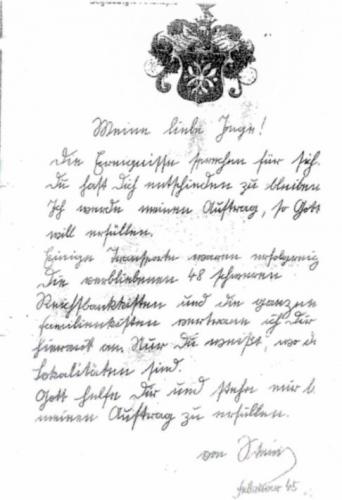 Meine liebe Inge!
Die Ereignisse sprechen für sich.
Du hast Dich entschieden zu bleiben
Ich werde meinen Auftrag, so Gott
will erfüllen.
Einige Transporte waren erfolgreich
Die verbliebenen 48 schweren
Reichsbankkisten und die ganzen
Familienkisten vertraue ich Dir
hiermit an. Nur Du weißt, wo d
Lokalitäten sind.
Gott helfe Dir und stehe mir b
meinen Auftrag zu erfüllen.
von Stein
Februar 45